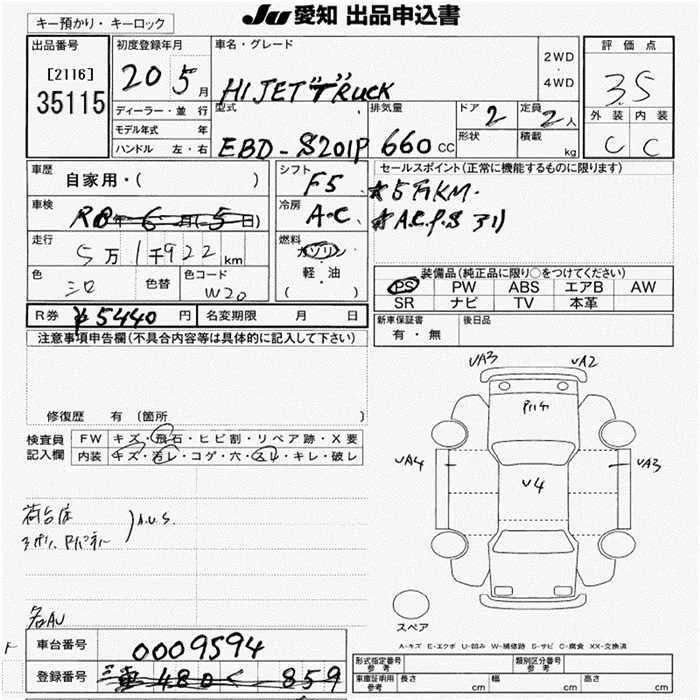 JU 愛知 出品申込書
キー預かり・キーロック
出品番号
[2116]
35115
初度登録年月
20 5月
ディーラー・並行
モデル年式 年
ハンドル 左・右
車名・グレード
HIJET "TRUCK
2WD
・
4WD
型式
EBD-S201P
排気量
660 CC
ドア 2
形状
定員 2人
積載 kg
評価点
3.5
外装 内装
C C
車歴
自家用・( )
シフト
F5
セールスポイント(正常に機能するものに限ります)
★5万KM.
★A.C.P.S ヨリ
車検
R8年6月(5日)
冷房
A・C
走行
5万1千922km
燃料
ガソリン
軽・油
( )
色
シロ
色替
色コード
W20
装備品(純正品に限り○をつけてください)
PS PW ABS エアB AW
SR ナビ TV 本革
R券 ¥5440円
名変期限 月 日
新車保証書
有・無
後日品
注意事項申告欄(不具合内容等は具体的に記入して下さい)
修復歴 有 (箇所 )
検査員
記入欄
FW キズ・飛石・ヒビ割・リペア跡・X要
内装 キズ・汚レ・コゲ・穴・スレ・キレ・破レ
荷台床
A.U.S.
各AU
UA3 UA2
UA4 UA3
U4
スペア
A-キズ E-エクボ U-凹み W-補修跡 S-サビ C-腐食 XX-交換済
車台番号
0009594
登録番号
480 く 859
形式指定番号
参考
類別区分番号
参考
車庫証明用
参考
長さ cm
幅 cm
高さ cm